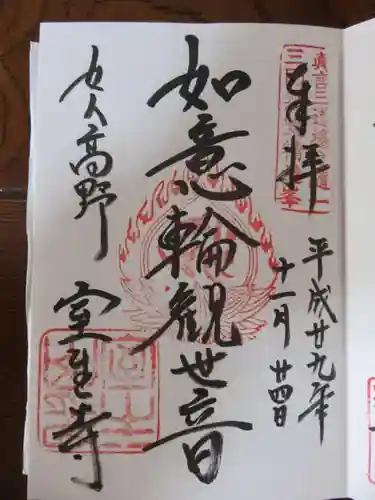 奉拝
平成廿九年
十一月廿四日
如意輪観世音
女人高野
室生寺